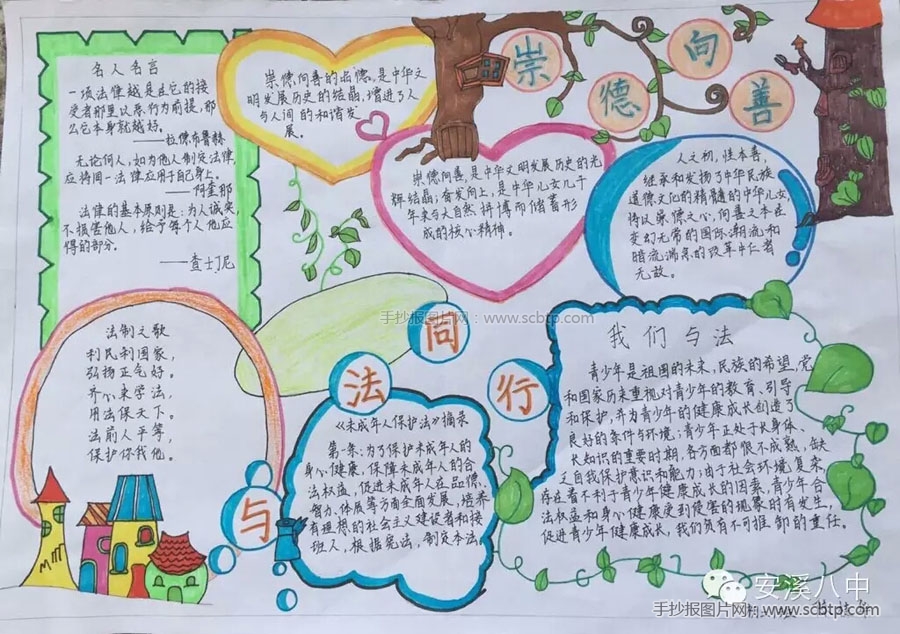 崇
德
向
善
名人名言
一项法律越是在它的接
受者那里以恶行为前提,那
么它本身就越好。
——拉德布鲁赫
无论何人,如为他人制定法律,
应将同一法律应用于自己身上。
——阿奎那
法律的基本原则是:为人诚实,
不损害他人,给予每个人他应
得的部分。
——查士丁尼
崇德向善的品德。是中华文
明发展历史的结晶,增进了人
与人间的和谐发
展。
崇德向善,是中华文明发展历史的光
辉结晶,奋发向上,是中华儿女几千
年来与大自然拼搏而储蓄形
成的核心精神。
人之初,性本善,
继承和发扬了中华民族
道德文化的精髓的中华儿女,
将以崇德之心,向善之本在
变幻无常的国际潮流和
暗流湍急的改革中仁者
无敌。
手抄报图片网:www.scbtp.com
与
法
同
行
法制之歌
利民利国家,
弘扬正气好。
齐心来学法,
用法保天下。
法前人平等,
保护你我他。
《未成年人保护法》摘录
第一条:为了保护未成年人的
身心健康,保障未成年人的合
法权益,促进未成年人在品德、
智力、体质等方面全面发展,培养
有理想的社会主义建设者和接
班人,根据宪法,制定本法。
我们与法
青少年是祖国的未来,民族的希望,党
和国家历来重视对青少年的教育、引导
和保护,并为青少年的健康成长创造了
良好的条件与环境;青少年正处于长身体、
长知识的重要时期,各方面都很不成熟,缺
乏自我保护意识和能力,由于社会环境复杂,
存在着不利于青少年健康成长的因素,青少年合
法权益和身心健康受到侵害的现象时有发生,
促进青少年健康成长,我们负有不可推卸的责任。
安溪八中
手抄报图片网:www.scbtp.com